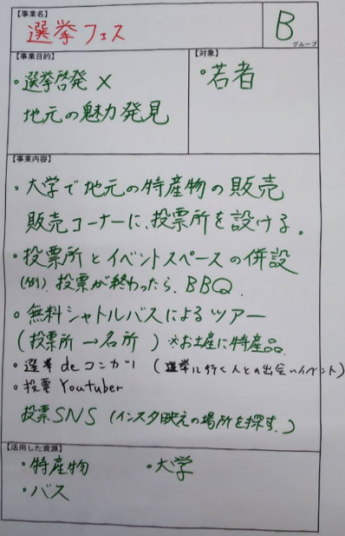 【事業名】
選挙フェス
B
グループ
【事業目的】
・選挙啓発×
地元の魅力発見
【対象】
・若者
【事業内容】
・大学で地元の特産物の販売
販売コーナーに、投票所を設ける。
・投票所とイベントスペースの併設
(例) 投票が終わったら、BBQ
・無料シャトルバスによるツアー
(投票所→名所) *お土産に特産品
・選挙deコンカツ (選挙に行く人との出会いイベント)
・投票Youtuber
投票SNS (インスタ映えの場所を探す。)
【活用した資源】
・特産物 ・大学
・バス